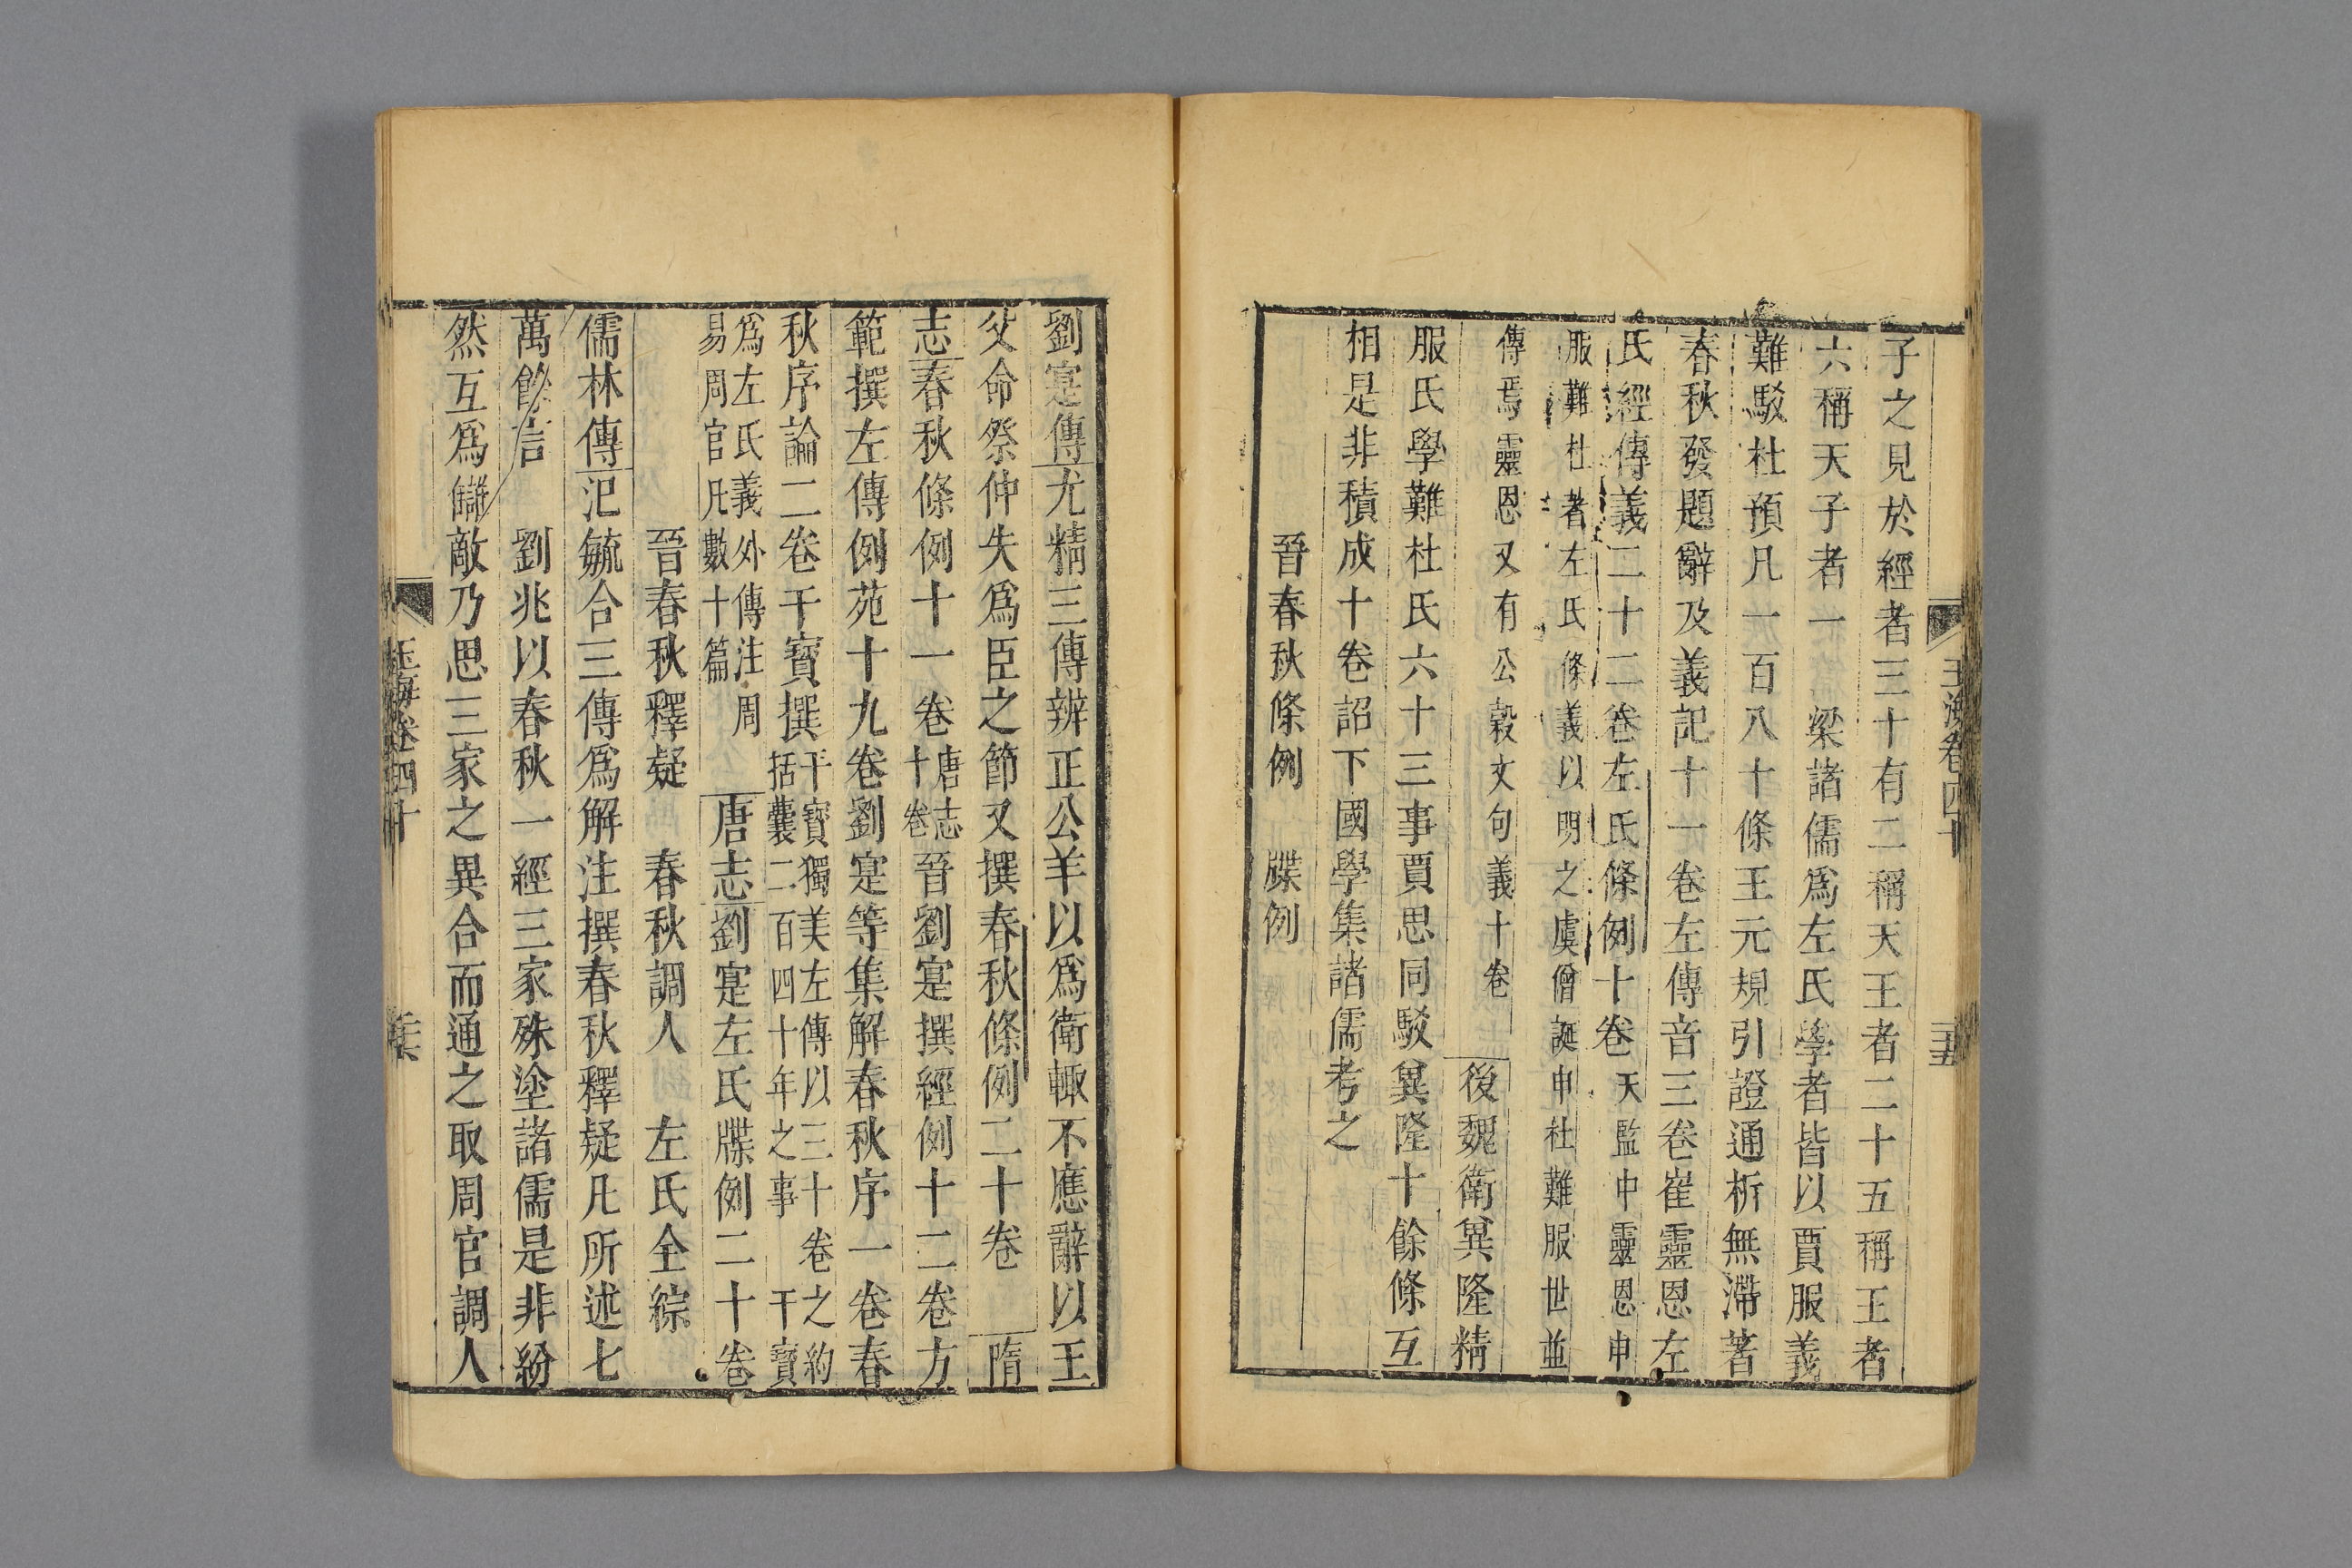 玉海卷四十
子之見於經者三十有二稱天王者二十五稱王者
六稱天子者一 梁諸儒爲左氏學者皆以賈服義
難駁杜預凡一百八十條王元規引證通析無滯著
春秋發題辭及義記十一卷左傳音三卷崔靈恩左
氏經傳義二十二卷左氏條例十卷天監中靈恩申
服難杜著左氏條義以明之虞僧誕申杜難服世並
傳焉靈恩又有公穀文句義十卷 後魏衛冀隆精
服氏學難杜氏六十三事賈思同駁冀隆十餘條互
相是非積成十卷詔下國學集諸儒考之
晉春秋條例 牒例
劉寔傳尤精三傳辨正公羊以爲衛輒不應辭以王
父命祭仲失爲臣之節又撰春秋條例二十卷 隋
志春秋條例十一卷唐志十卷晉劉寔撰經例十二卷方
範撰左傳例苑十九卷劉寔等集解春秋序一卷春
秋序論二卷干寶撰干寶獨美左傳以三十卷之約
括囊二百四十年之事 干寶
爲左氏義外傳注周
易周官凡數十篇 唐志劉寔左氏牒例二十卷
晉春秋釋疑 春秋調人 左氏全綜
儒林傳氾毓合三傳爲解注撰春秋釋疑凡所述七
萬餘言 劉兆以春秋一經三家殊塗諸儒是非紛
然互爲讎敵乃思三家之異合而通之取周官調人
玉海卷四十